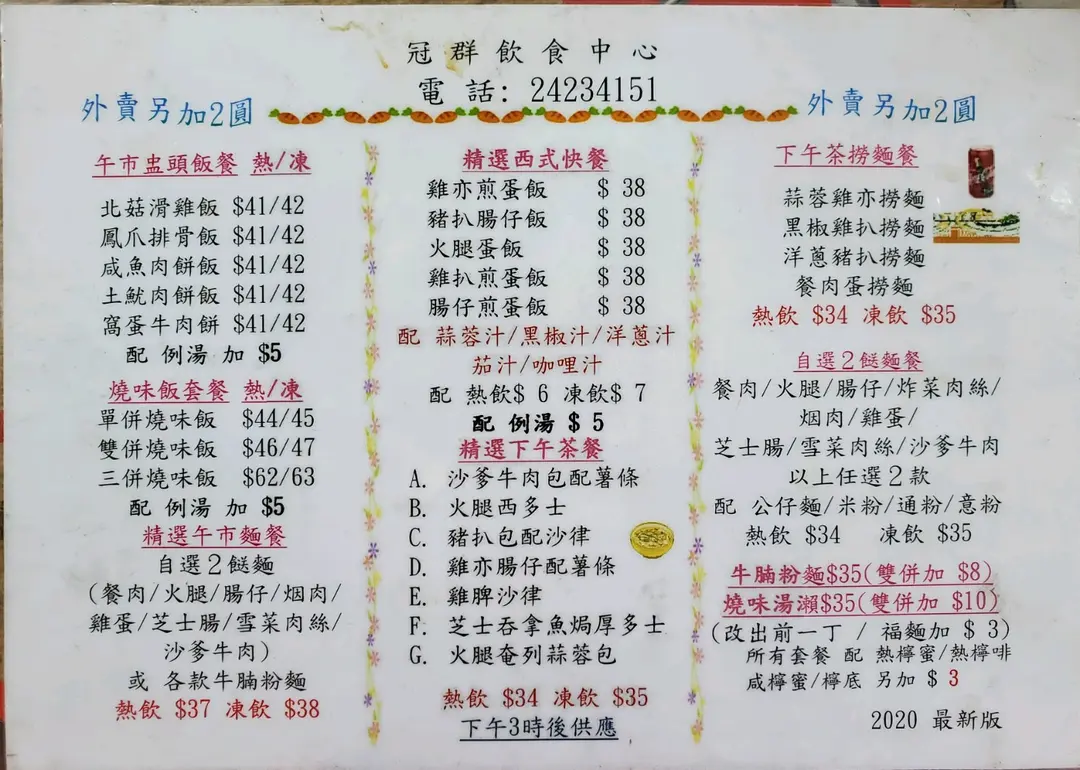 冠群飲食中心
電話: 24234151
外賣另加2圓
外賣另加2圓
午市盅頭飯餐 熱/凍
北菇滑雞飯 $41/42
鳳爪排骨飯 $41/42
咸魚肉餅飯 $41/42
土魷肉餅飯 $41/42
窩蛋牛肉餅 $41/42
配 例湯 加 $5
燒味飯套餐 熱/凍
單併燒味飯 $44/45
雙併燒味飯 $46/47
三併燒味飯 $62/63
配 例湯 加 $5
精選午市麵餐
自選2餸麵
(餐肉/火腿/腸仔/烟肉/
雞蛋/芝士腸/雪菜肉絲/
沙爹牛肉)
或 各款牛腩粉麵
熱飲 $37 凍飲 $38
精選西式快餐
雞亦煎蛋飯 $ 38
豬扒腸仔飯 $ 38
火腿蛋飯 $ 38
雞扒煎蛋飯 $ 38
腸仔煎蛋飯 $ 38
配 蒜蓉汁/黑椒汁/洋蔥汁
茄汁/咖哩汁
配 熱飲$ 6 凍飲$ 7
配 例湯 $ 5
精選下午茶餐
A. 沙爹牛肉包配薯條
B. 火腿西多士
C. 豬扒包配沙律
D. 雞亦腸仔配薯條
E. 雞脾沙律
F. 芝士吞拿魚焗厚多士
G. 火腿奄列蒜蓉包
熱飲 $34 凍飲 $35
下午3時後供應
下午茶撈麵餐
蒜蓉雞亦撈麵
黑椒雞扒撈麵
洋蔥豬扒撈麵
餐肉蛋撈麵
熱飲 $34 凍飲 $35
自選2餸麵餐
餐肉/火腿/腸仔/炸菜肉絲/
烟肉/雞蛋/
芝士腸/雪菜肉絲/沙爹牛肉
以上任選2款
配 公仔麵/米粉/通粉/意粉
熱飲 $34 凍飲 $35
牛腩粉麵$35(雙併加 $8)
燒味湯瀨$35(雙併加 $10)
(改出前一丁 / 福麵加 $ 3)
所有套餐 配 熱檸蜜/熱檸啡
咸檸蜜/檸底 另加 $ 3
2020 最新版